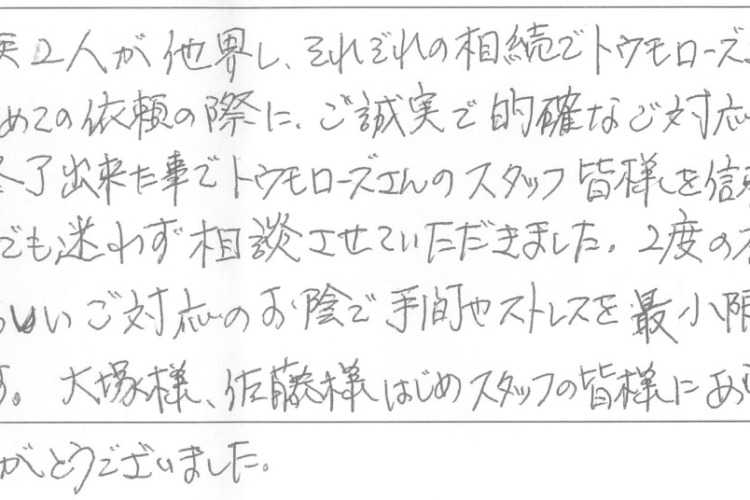 2人が他界し、それぞれの相続でトウモローズ
めての依頼の際に、ご誠実で的確なご対応
終了出来た事でトウモローズさんのスタッフ皆様を信
でも迷わず相談させていただきました。2度の
しいご対応のお陰で手間やストレスを最小限
す。大塚様、佐藤様はじめスタッフの皆様にあ
がとうございました。